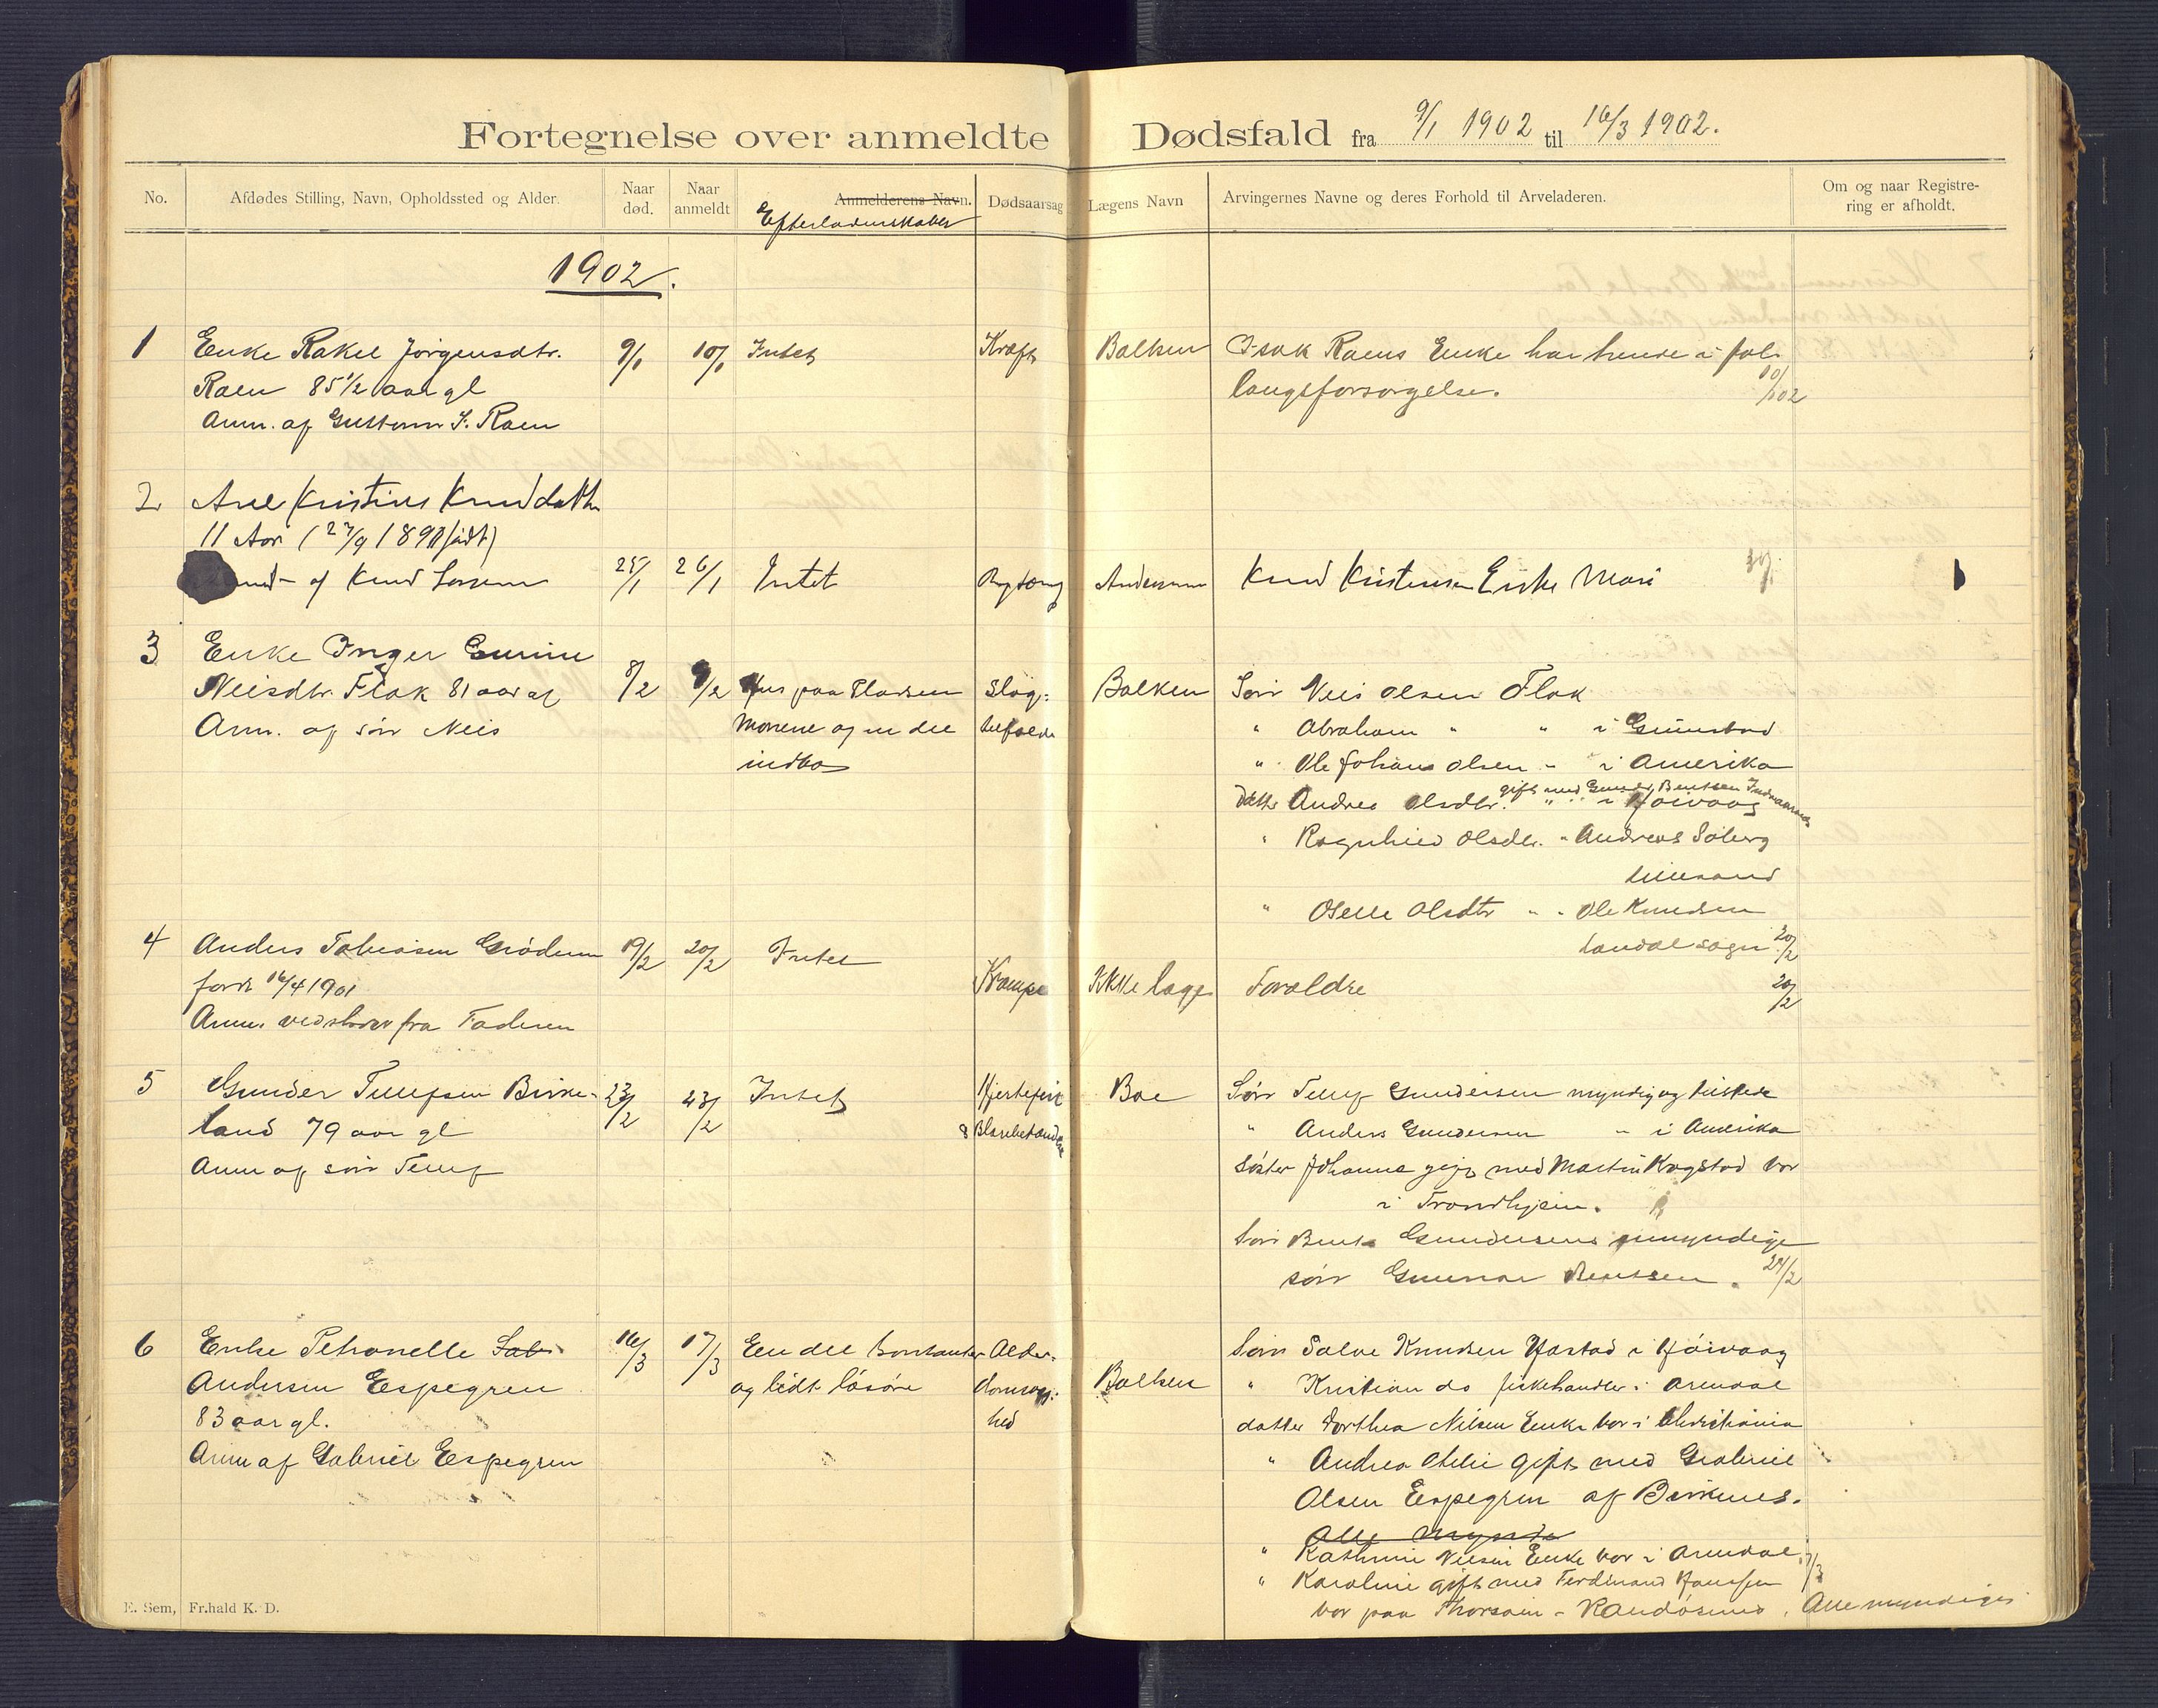 Fortegnelse over anmeldte Dødsfald fra 9/1 1902 til 16/3 1902.
No. Afdødes Stilling, Navn, Opholdssted og Alder. Naar død. Naar anmeldt Anmelderens Navn. Efterladenskaber Dødsaarsag Lægens Navn Arvingernes Navne og deres Forhold til Arveladeren. Om og naar Registrering er afholdt.
1902.
1 Enke Rakel Jörgensdtr. 9/1 10/1 Intet Kræft Balken Isak Raens Enke har hende i
Raen 85 1/2 aar gl langsforsorgelse. 10/1 02
Anm. af S. Raen
2 Kristine
11 Aar (27/9 1890 född)
af Knud 25/1 26/1 Intet Andersen Knud Kristensen Enke Mari
3 Enke Inger
Neisdtr. Flak 81 aar gl 8/2 9/2 Hus paa Slag- Balken Sön Neis Olsen Flak
Anm. af sön Neis og en del tilfælde " Abraham " " i Grimstad
indbo " Ole Johan Olsen " i Amerika
datter Andrea Olsdtr. gift med Bentsen
" " i Höivaag
" Ragnhild Olsdtr. " Andreas
Lillesand
" Olsdtr " " Ole Knudsen
sogn 20/2
4 Anders Tobiasen 19/2 20/2 Intet
född 16/4 1901 Krampe Ikke læge Forældre 20/2
Anm. fra Faderen
5 Gunder Tellefsen Birke- 23/2 23/2 Intet Hjertefeil Boe Sön Tellef Gundersen myndig og
land 79 aar gl & Blærebetændelse " Anders Gundersen " i Amerika
Anm af sön Tellef söster Johanne gift med Martin Kogstad bor
i Trondhjem.
Sön Bent Gundersens umyndige
sön Gunnar Bentsen. 24/2
6 Enke Petronelle 16/3 17/3 En del Alder- Sön Salve Knudsen i Höivaag
Andersen Espegren og lidt lösöre Balken " Kristian do fiskehandler i Arendal
83 aar gl. hed datter Dorthea Nilsen Enke bor i Christiania
Anm af Gabriel Espegren " Andrea gift med Gabriel
Olsen Espegren af Birkenes.
Alle
" Kathrine Nilsen Enke bor i Arendal
" Karoline gift med Ferdinand Hanssen
bor paa - Randösund. Alle myndige
E. Sem, Fr.hald K. D.